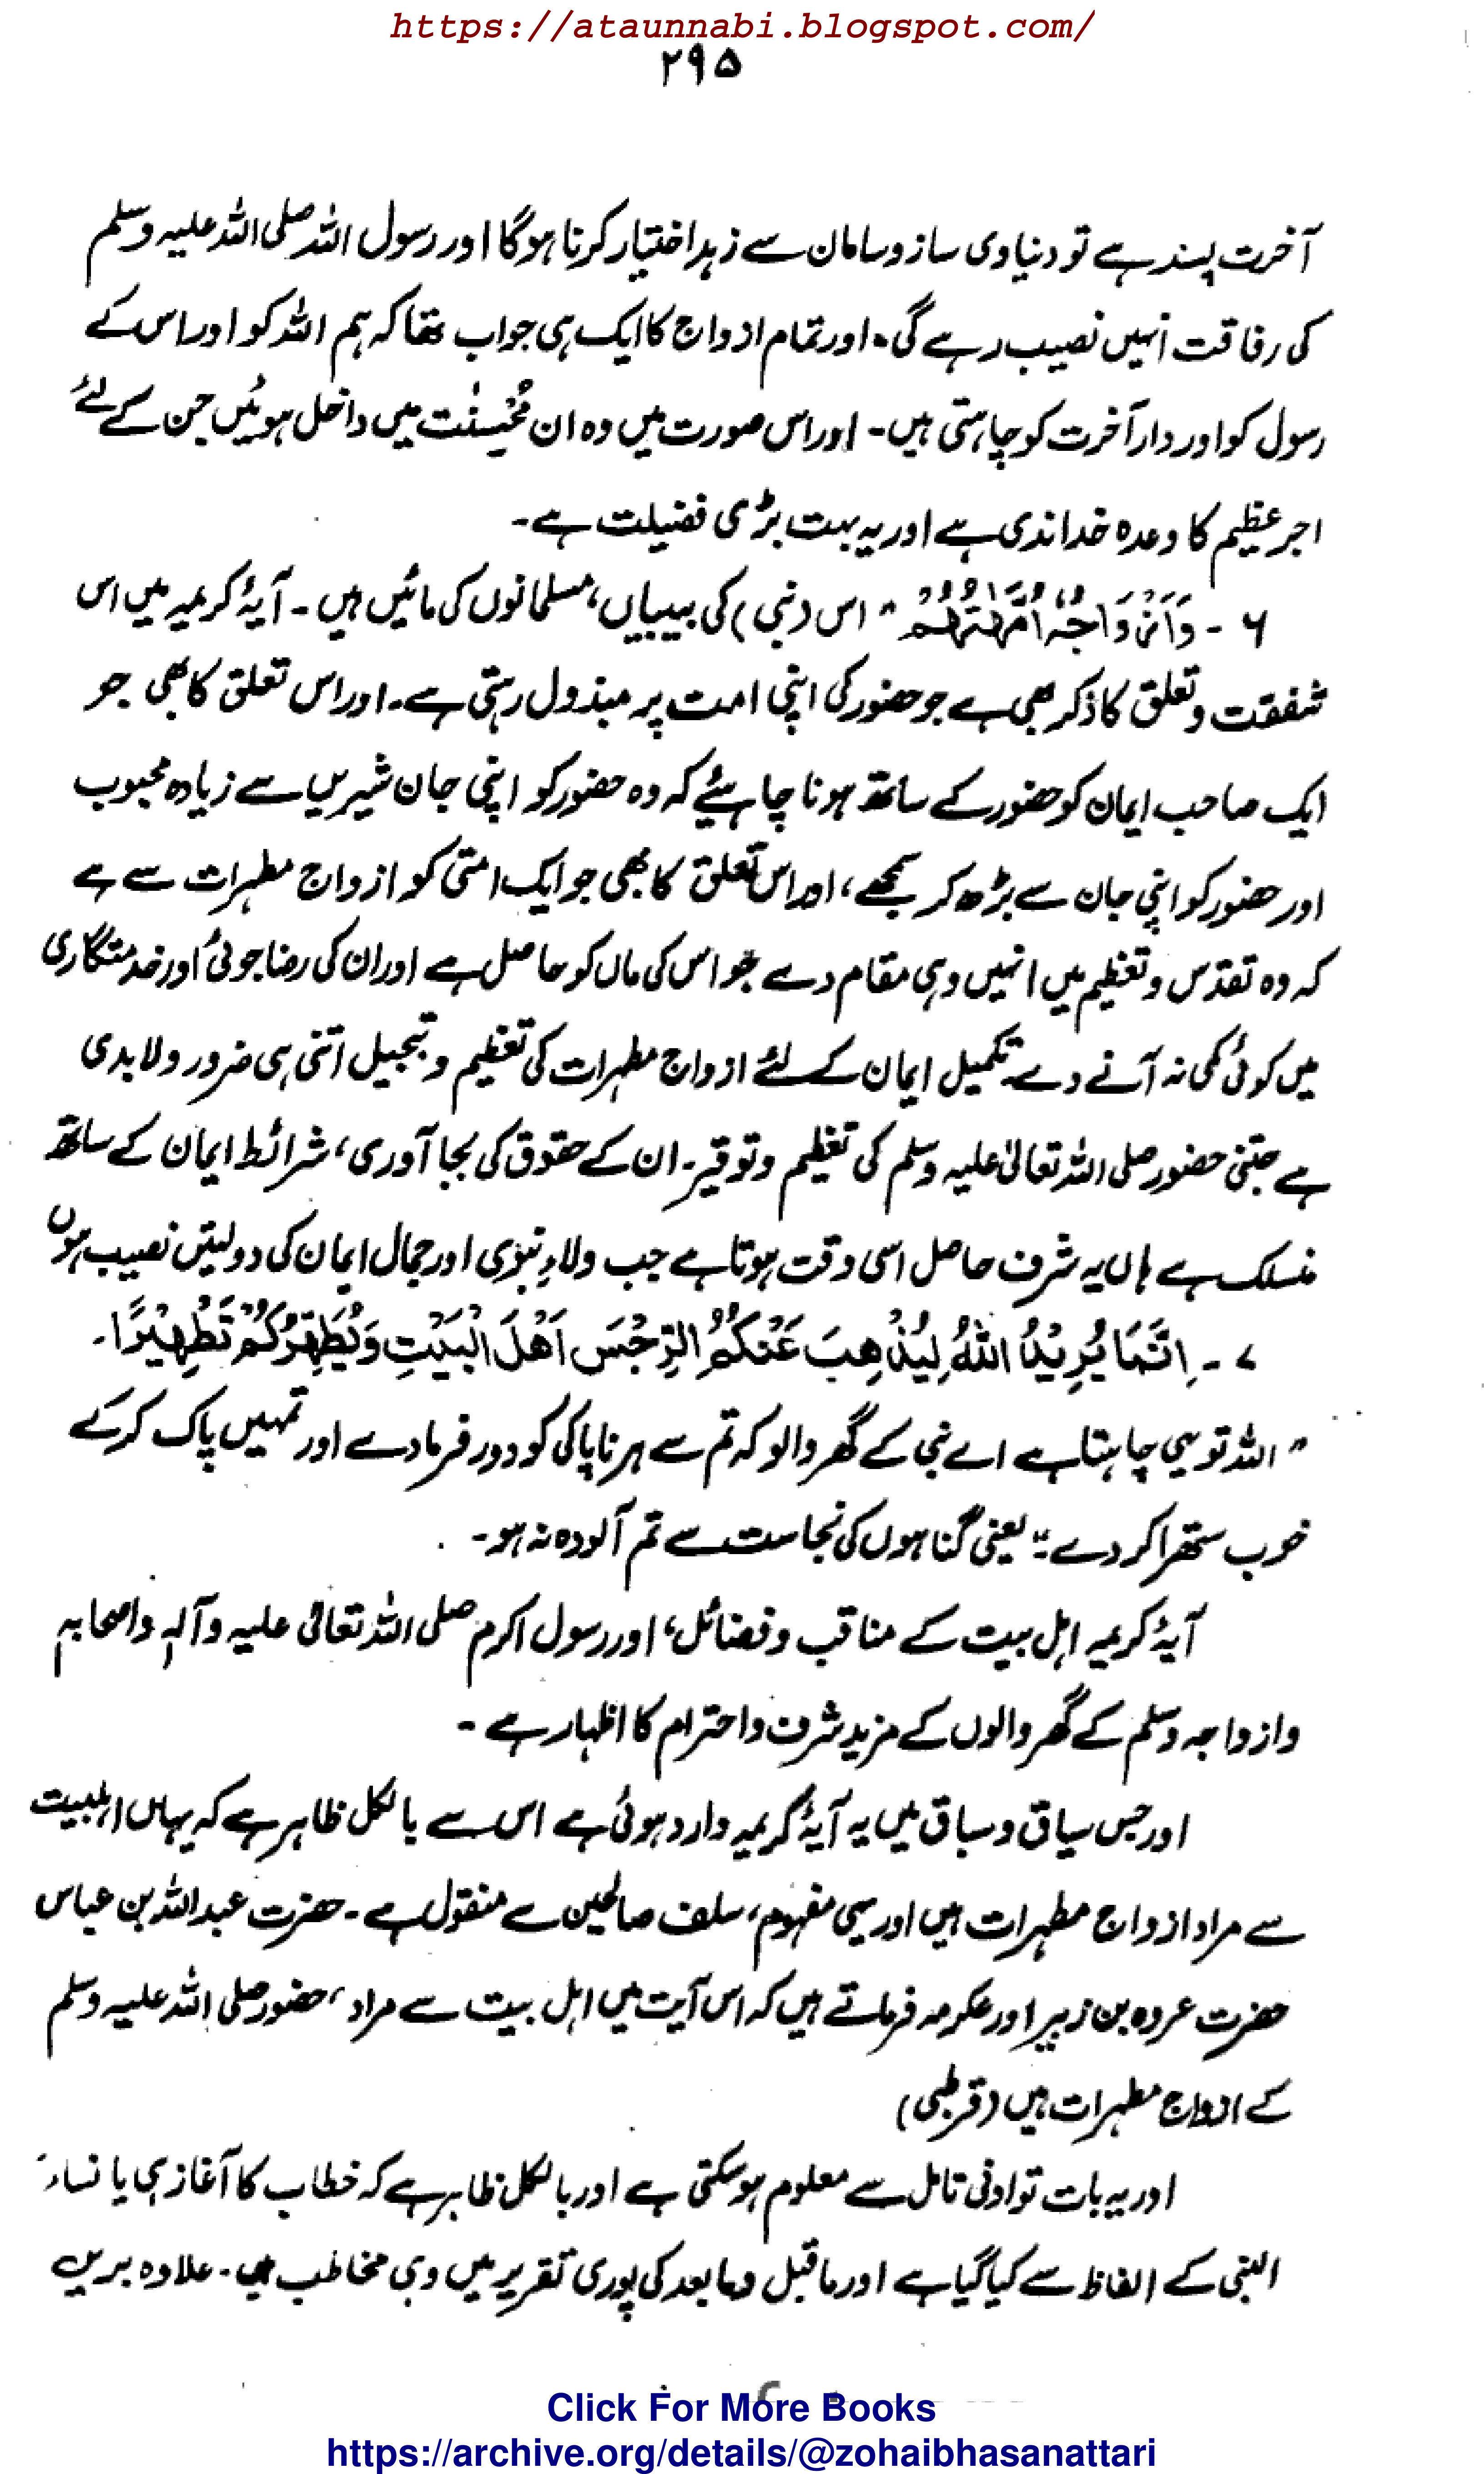 https://ataunnabi.blogspot.com/
۲۹۵
آخرت پسند ہے تو دنیاوی ساز وسامان سے زہد اختیار کرنا ہوگا اور رسول اللہ صلی اللہ علیہ وسلم
کی رفاقت انہیں نصیب رہے گی۔ اور تمام ازواج کا ایک ہی جواب تھا کہ ہم اللہ کو اور اس کے
رسول کو اور دار آخرت کو چاہتی ہیں۔ اور اس صورت میں وہ ان مُحْسِنٰت میں داخل ہوئیں جن کے لئے
اجر عظیم کا وعدہ خداندی ہے اور یہ بہت بڑی فضیلت ہے۔
۶ - وَاَزْوَاجُہٗ اُمَّہٰتُہُمْ " اس (نبی) کی بیبیاں، مسلمانوں کی مائیں ہیں۔ آیۂ کریمہ میں اس
شفقت و تعلق کا ذکر بھی ہے جو حضور کی اپنی امت پر مبذول رہتی ہے۔ اور اس تعلق کا بھی جو
ایک صاحب ایمان کو حضور کے ساتھ ہونا چاہئیے کہ وہ حضور کو اپنی جان شیریں سے زیادہ محبوب
اور حضور کو اپنی جان سے بڑھ کر سمجھے، اور اس تعلق کا بھی جو ایک امتی کو ازواج مطہرات سے ہے
کہ وہ تقدّس و تعظیم میں انہیں وہی مقام دے جو اس کی ماں کو حاصل ہے اور ان کی رضا جوئی اور خدمتگاری
میں کوئی کمی نہ آنے دے۔ تکمیل ایمان کے لئے ازواج مطہرات کی تعظیم و تبجیل اتنی ہی ضرور ولابدی
ہے جتنی حضور صلی اللہ تعالیٰ علیہ وسلم کی تعظیم و توقیر۔ ان کے حقوق کی بجا آوری، شرائط ایمان کے ساتھ
منسلک ہے ہاں یہ شرف حاصل اسی وقت ہوتا ہے جب ولاءِ نبوی اور جمال ایمان کی دولتیں نصیب ہوں
۷ - اِنَّمَا یُرِیْدُ اللّٰہُ لِیُذْھِبَ عَنْکُمُ الرِّجْسَ اَھْلَ الْبَیْتِ وَیُطَھِّرَکُمْ تَطْھِیْرًا۔
" اللہ تو یہی چاہتا ہے اے نبی کے گھر والو کہ تم سے ہر ناپاکی کو دور فرمادے اور تمہیں پاک کرکے
خوب ستھرا کر دے" یعنی گناہوں کی نجاست سے تم آلودہ نہ ہو۔
آیۂ کریمہ اہل بیت کے مناقب و فضائل، اور رسول اکرم صلی اللہ تعالیٰ علیہ وآلہٖ واصحابہٖ
وازواجہ وسلم کے گھر والوں کے مزید شرف واحترام کا اظہار ہے۔
اور جس سیاق و سباق میں یہ آیۂ کریمہ وارد ہوئی ہے اس سے بالکل ظاہر ہے کہ یہاں اہلبیت
سے مراد ازواج مطہرات ہیں اور یہی مفہوم، سلف صالحین سے منقول ہے۔ حضرت عبداللہ بن عباس
حضرت عروہ بن زبیر اور عکرمہ فرماتے ہیں کہ اس آیت میں اہل بیت سے مراد، حضور صلی اللہ علیہ وسلم
کے ازواج مطہرات ہیں (قرطبی)
اور یہ بات تو ادنیٰ تامل سے معلوم ہوسکتی ہے اور بالکل ظاہر ہے کہ خطاب کا آغاز ہی یا نساءَ
النبی کے الفاظ سے کیا گیا ہے اور ماقبل وما بعد کی پوری تقریر میں وہی مخاطب ہیں۔ علاوہ بریں
Click For More Books
https://archive.org/details/@zohaibhasanattari